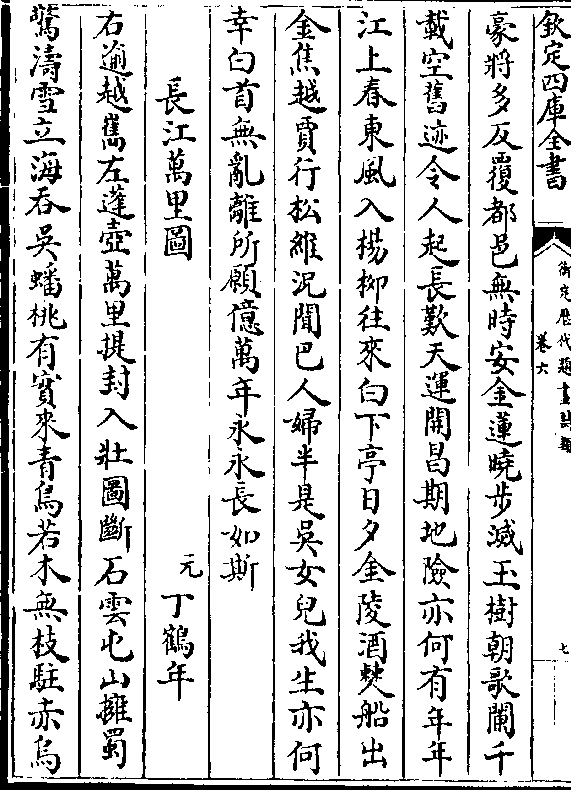 欽定四庫全書
御定歷代題畫詩類
卷六
七
豪將多反覆都邑無時安金蓮曉步滅玉樹朝歌闌千
載空舊迹令人起長歎天運開昌期地險亦何有年年
江上春東風入楊柳往來白下亭日夕金陵酒僰船出
金焦越賈行松維況聞巴人婦半是吳女兒我生亦何
幸白首無亂離所願億萬年永永長如斯
長江萬里圖
元 丁鶴年
右逾越嶲左蓬壺萬里提封入壯圖斷石雲屯山擁蜀
驚濤雪立海吞吳蟠桃有實來青鳥若木無枝駐赤烏